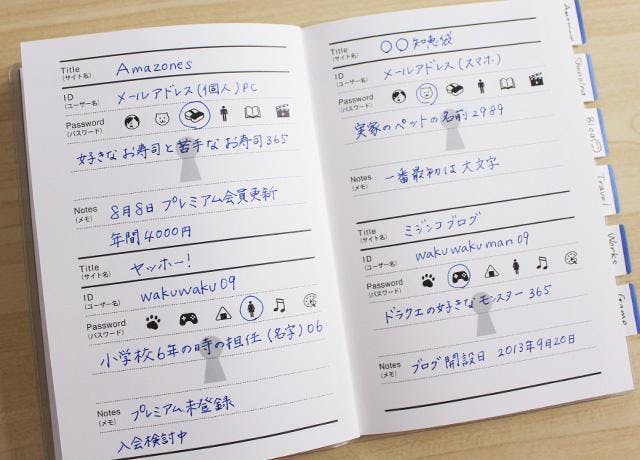 Title
(サイト名)
Amazones
ID
(ユーザー名)
メールアドレス(個人)PC
Password
(パスワード)
好きなお寿司と苦手なお寿司365
Notes
(メモ)
8月8日プレミアム会員更新
年間4000円
Title
(サイト名)
ヤッホー!
ID
(ユーザー名)
wakuwaku09
Password
(パスワード)
小学校6年の時の担任(名字)06
Notes
(メモ)
プレミアム未登録
入会検討中
Title
(サイト名)
○○知恵袋
ID
(ユーザー名)
メールアドレス(スマホ)
Password
(パスワード)
実家のペットの名前2989
Notes
(メモ)
一番最初は大文字
Title
(サイト名)
ミジンコブログ
ID
(ユーザー名)
wakuwakuman09
Password
(パスワード)
ドラクエの好きなモンスター365
Notes
(メモ)
ブログ開設日 2013年9月20日
Shopping
Blog
Travel
Works